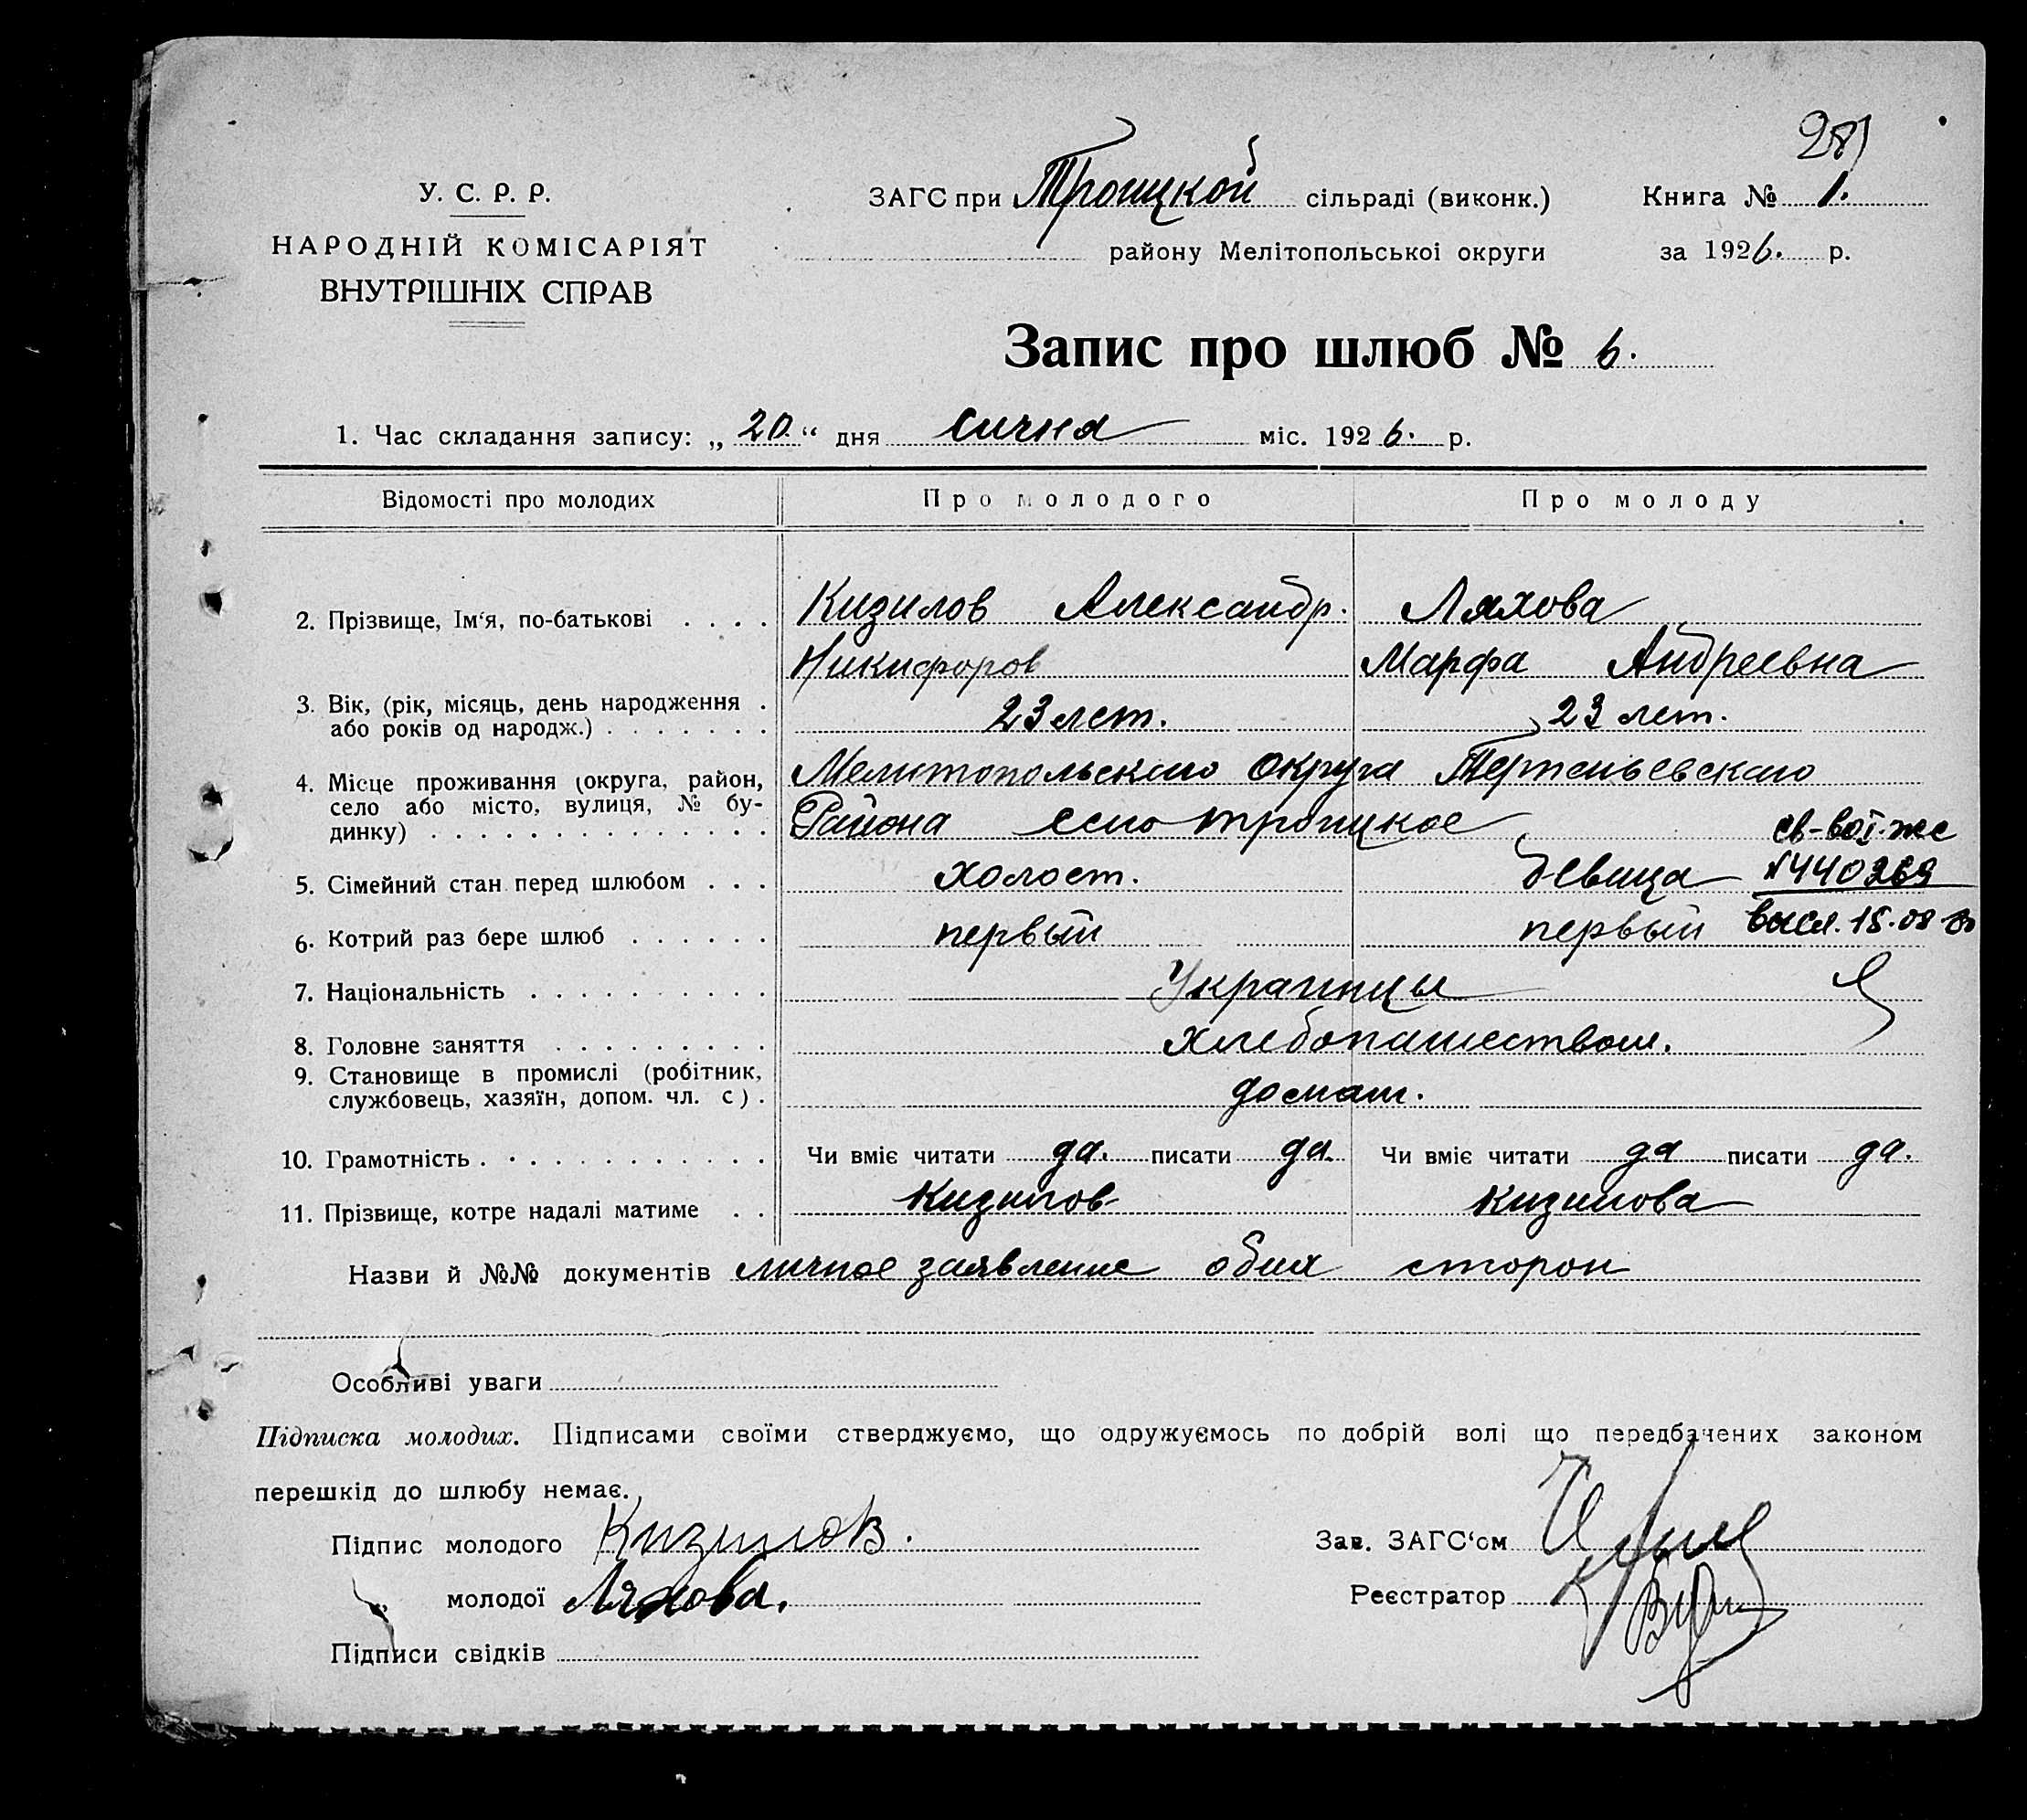 281
У. С. Р. Р.
НАРОДНІЙ КОМІСАРІЯТ
ВНУТРІШНІХ СПРАВ
ЗАГС при Троицкой сільраді (виконк.)
району Мелітопольської округи
Книга № 1.
за 1926. р.
Запис про шлюб № 6.
1. Час складання запису: „20.“ дня сичня міс. 1926. р.
Відомості про молодих Про молодого Про молоду
2. Прізвище, Ім‘я, по-батькові Кизилов Александр. Ляхова
Никифоров Марфа Андреевна
3. Вік, (рік, місяць, день народження
або років од народж.) 23 лет. 23 лет.
4. Місце проживання (округа, район,
село або місто, вулиця, № бу-
динку)
Мелитопольского округа Терпеньевского
Района село троицкое
5. Сімейний стан перед шлюбом холост. девица
св-во I-же
№440269
высл. 15.08
6. Котрий раз бере шлюб первый первый
7. Національність Украинцы
8. Головне заняття хлебопашеством.
9. Становище в промислі (робітник,
службовець, хазяїн, допом. чл. с).
10. Грамотність Чи вміє читати да. писати да Чи вміє читати да писати да.
11. Прізвище, котре надалі матиме Кизилов Кизилова
Назви й №№ документів личное заявление обих сторон
Особливі уваги
Підписка молодих. Підписами своїми стверджуємо, що одружуємось по добрій волі що передбачених законом
перешкід до шлюбу немає.
Підпис молодого Кизилов.
„ молодої Ляхова.
Підписи свідків
Зав. ЗАГС‘ом
Реєстратор